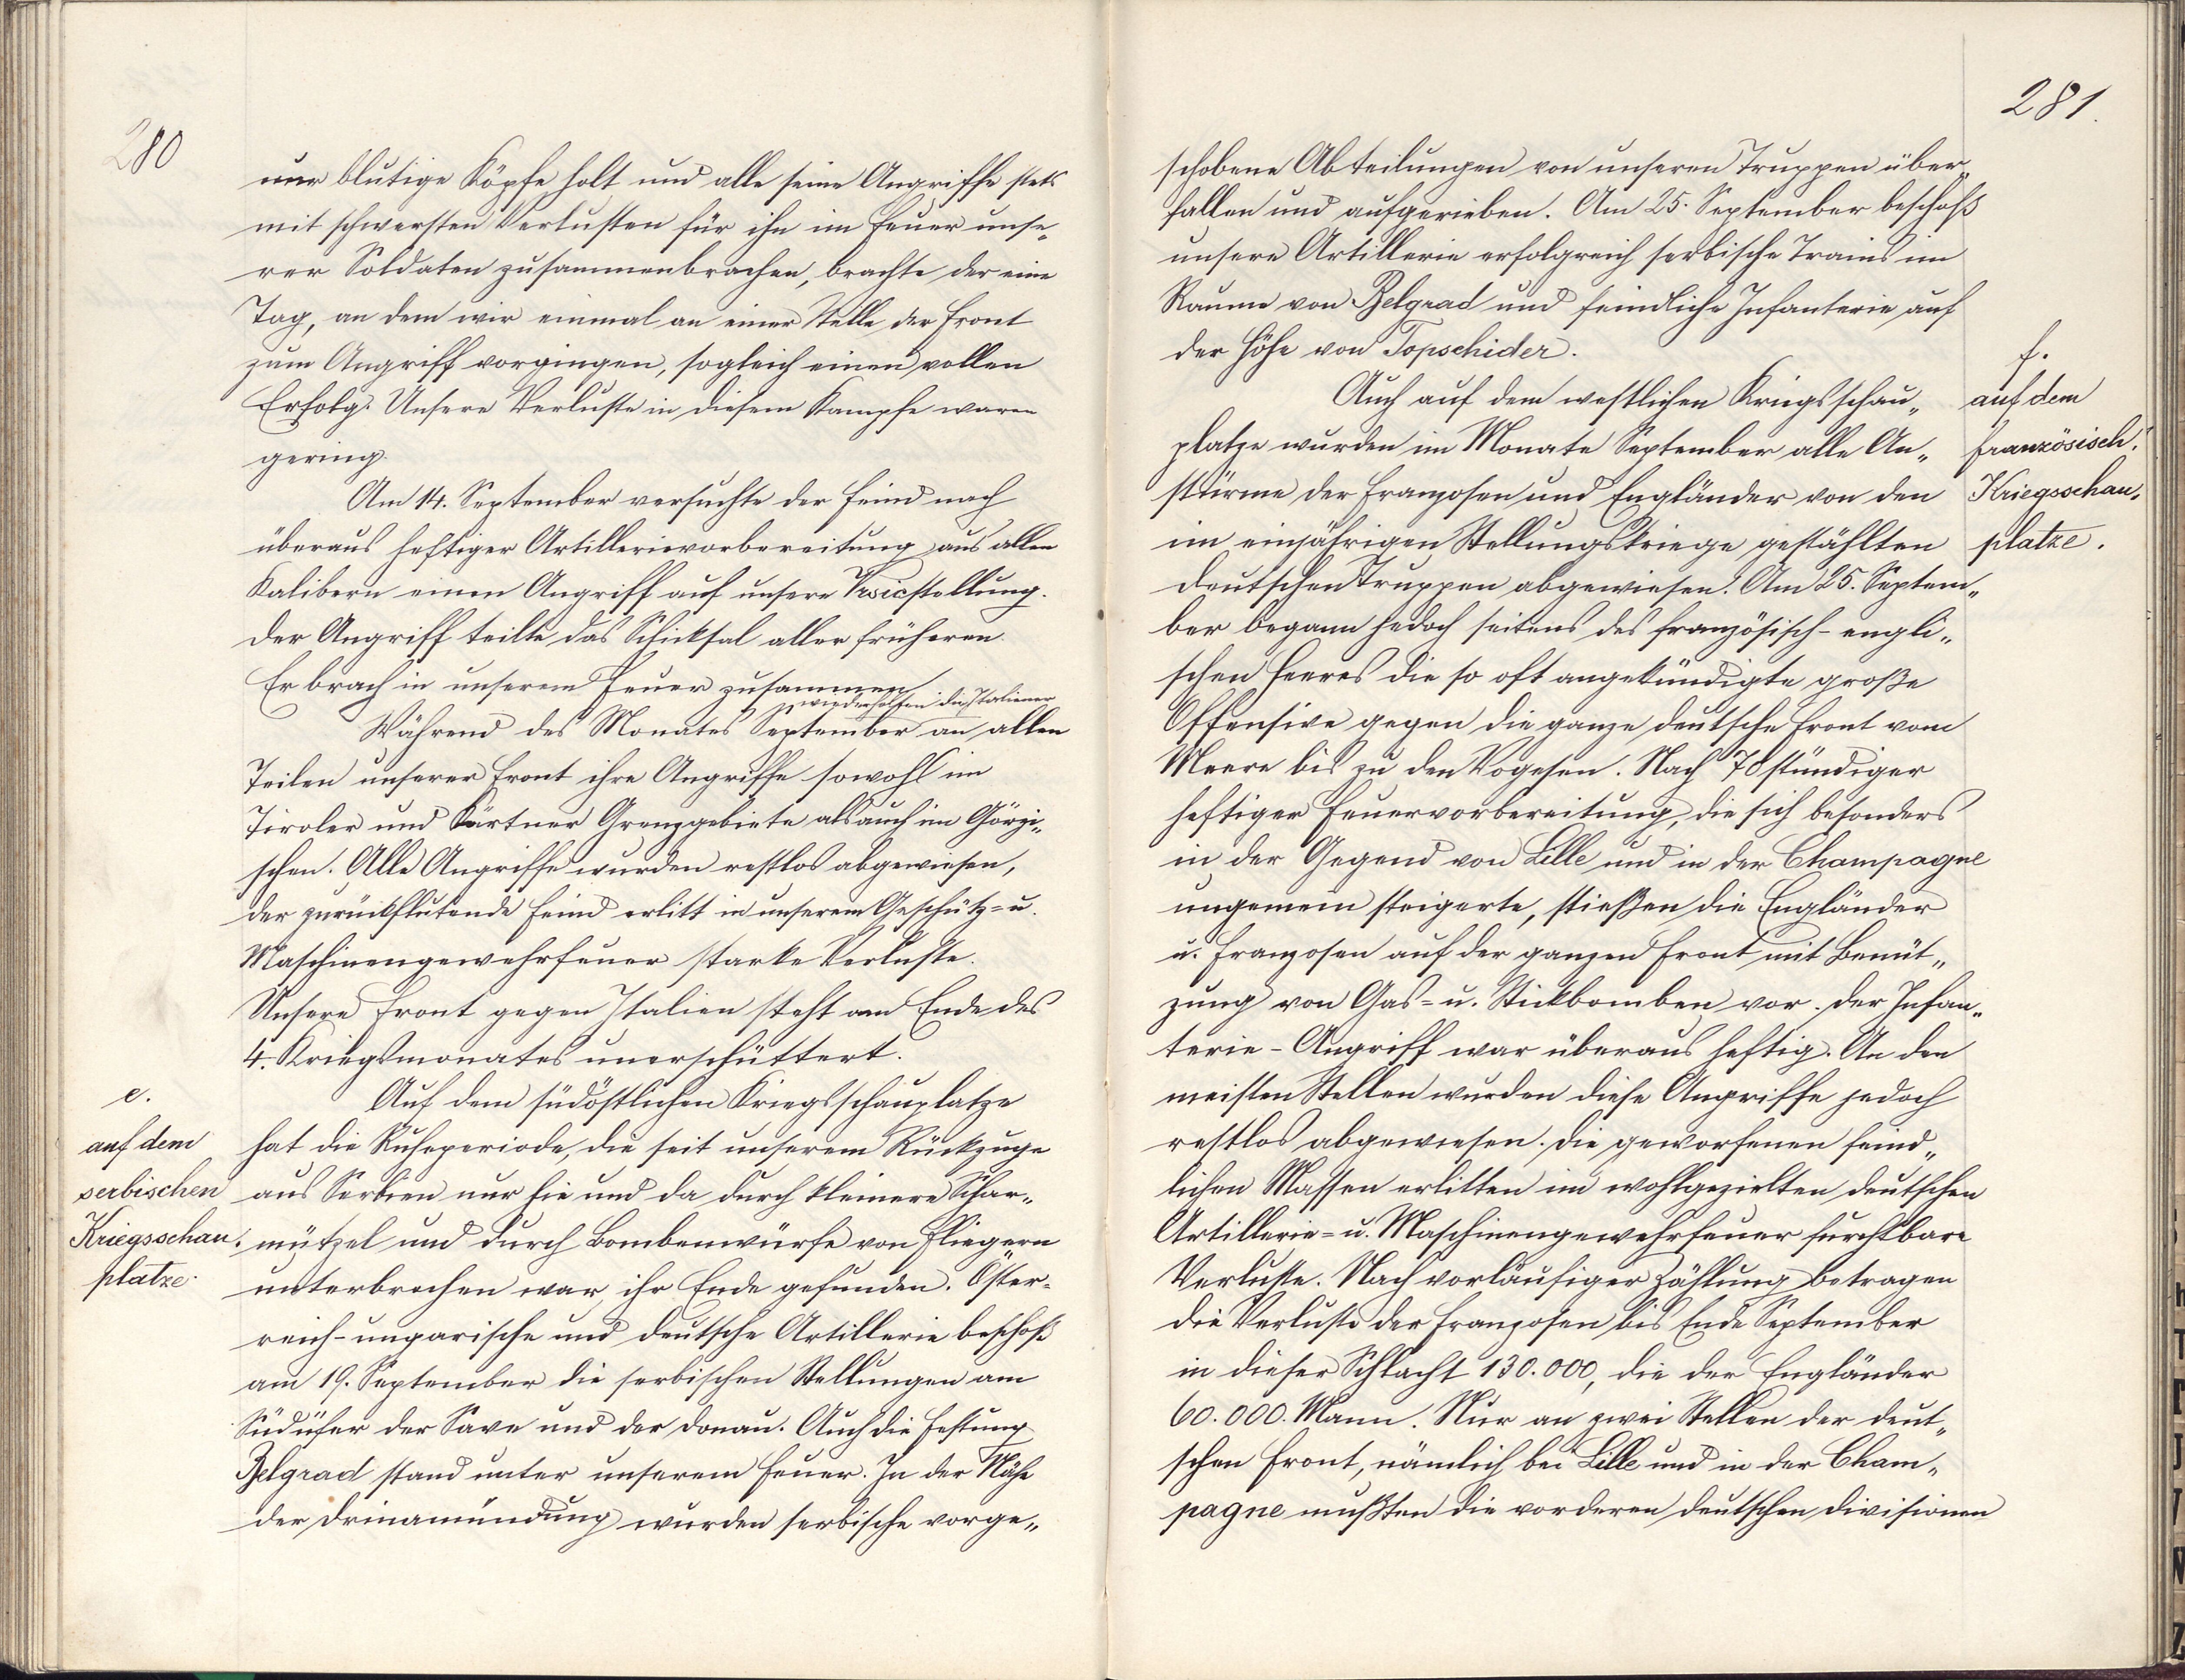 280
nur blutige Köpfe holt und alle seine Angriffe stets
mit schwersten Verlusten für ihn im Feuer unse„
rer Soldaten zusammenbrachen, brachte der eine
Tag, an dem wir einmal an einer Stelle der Front
zum Angriff vorgingen, sogleich einen vollen
Erfolg. Unsere Verluste in diesem Kampfe waren
gering.
Am 14. September versuchte der Feind nach
überaus heftiger Artillerievorbereitung aus allen
Kalibern einen Angriff auf unsere Vrsicstellung.
Der Angriff teilte das Schicksal aller früheren.
Er brach in unserem Feuer zusammen.
wiederholten die Italiener
Während des Monates September an allen
Teilen unserer Front ihre Angriffe sowohl im
Tiroler und Kärtner Grenzgebiete als auch im Görzi„
schen. Alle Angriffe wurden restlos abgewiesen,
der zurückflutende Feind erlitt in unserem Geschütz= u.
Maschinengewehrfeuer starke Verluste.
Unsere Front gegen Italien steht am Ende des
4. Kriegsmonates unerschüttert.
e.
auf dem
serbischen
Kriegsschau„
platze.
Auf dem südöstlichen Kriegsschauplatze
hat die Ruheperiode, die seit unserem Rückzuge
aus Serbien nur hie und da durch kleinere Schar„
mützel und durch Bombenwürfe von Fliegern
unterbrochen war, ihr Ende gefunden. Öster-
reich-ungarische und deutsche Artillerie beschoß
am 19. September die serbischen Stellungen am
Südufer der Save und der Donau. Auch die Festung
Belgrad stand unter unserem Feuer. In der Nähe
der Drinamündung wurden serbische vorge„
281.
schobene Abteilungen von unseren Truppen über„
fallen und aufgerieben. Am 25. September beschoß
unsere Artillerie erfolgreich serbische Trains im
Raume von Belgrad und feindliche Infanterie auf
der Höhe von Topschider.
f.
auf dem
französisch.
Kriegsschau„
platze.
Auch auf dem westlichen Kriegsschau„
platze wurden im Monate September alle An„
stürme der Franzosen und Engländer von den
im einjährigen Stellungskriege gestählten
deutschen Truppen abgewiesen. Am 25. Septem„
ber begann jedoch seitens des französisch-engli„
schen Heeres die so oft angekündigte große
Offensive gegen die ganze deutsche Front vom
Meere bis zu den Vogesen. Nach 70 stündiger
heftiger Feuervorbereitung, die sich besonders
in der Gegend von Lille und in der Champagne
ungemein steigerte, stießen die Engländer
u. Franzosen auf der ganzen Front mit Benüt„
zung von Gas= u. Stickbomben vor. Der Infan„
terie-Angriff war überaus heftig. An den
meisten Stellen wurden diese Angriffe jedoch
restlos abgewiesen. Die geworfenen feind„
lichen Massen erlitten im wohlgezielten deutschen
Artillerie= u. Maschinengewehrfeuer furchtbare
Verluste. Nach vorläufiger Zählung betragen
die Verluste der Franzosen bis Ende September
in dieser Schlacht 130.000, die der Engländer
60.000. Mann. Nur an zwei Stellen der deut„
schen Front, nämlich bei Lille und in der Cham„
pagne mußten die vorderen deutschen Divisionen